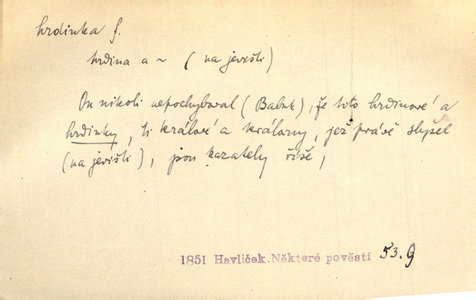 hrdinka f.
hrdina a ~ (na jevišti)
On nikoli nepochyboval (Babuk), že tito hrdinové a
hrdinky, ti králové a královny, jež právě slyšel
(na jevišti), jsou kazately říše,
1851 Havlíček. Některé pověsti 53.9